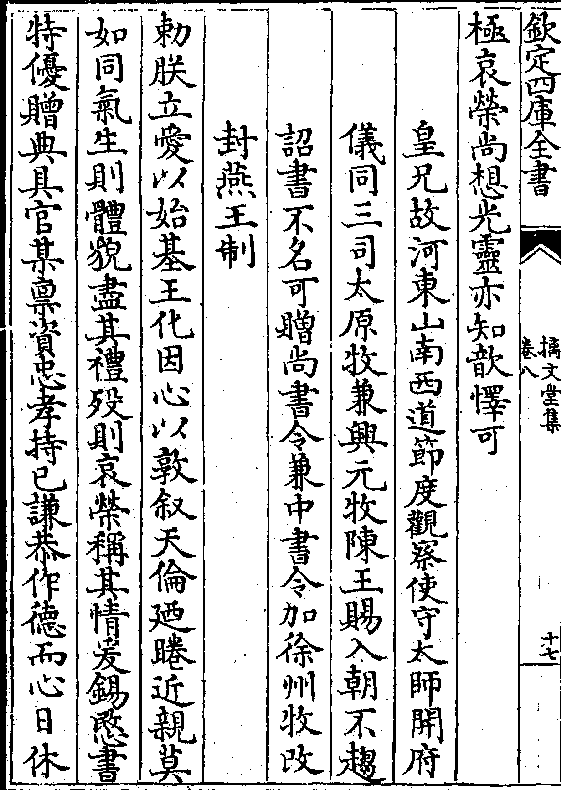 欽定四庫全書
摛文堂集
卷八
十七
極哀榮尚想光靈亦知歆懌可
皇兄故河東山南西道節度觀察使守太師開府
儀同三司太原牧兼興元牧陳王賜入朝不趨
詔書不名可贈尚書令兼中書令加徐州牧改
封燕王制
勅朕立愛以始基王化因心以敦叙天倫廼睠近親莫
如同氣生則體貌盡其禮歿則哀榮稱其情爰錫愍書
特優贈典具官某禀資忠孝持已謙恭作德而心日休